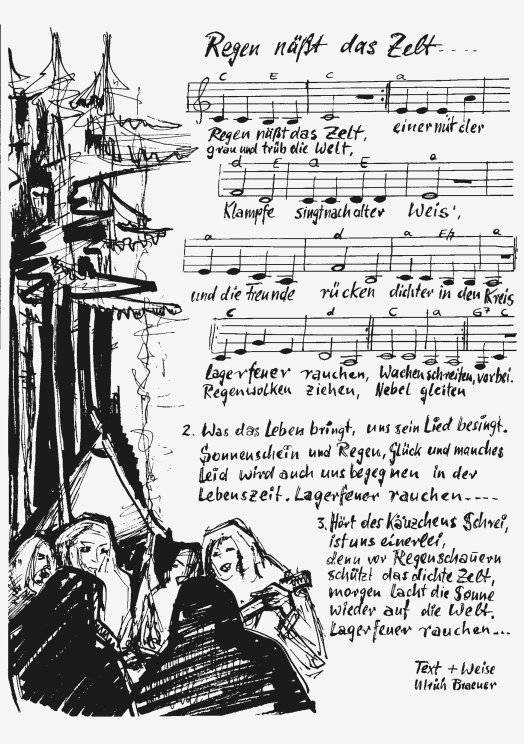 Regen näßt das Zelt....
C E C a
Regen näßt das Zelt, einer mit der
grau und trüb die Welt,
d E a E a
Klampfe singt nach alter Weis',
a d a E/7 a
und die Freunde rücken dichter in den Kreis
C d C a G7 C
Lagerfeuer rauchen, Wachen schreiten, vorbei.
Regenwolken ziehen, Nebel gleiten
2. Was das Leben bringt, uns sein Lied besingt.
Sonnenschein und Regen, Glück und manches
Leid wird auch uns begegnen in der
Lebenszeit. Lagerfeuer rauchen----
3. Hört des Käuzchens Schrei,
ist uns einerlei,
denn vor Regenschauern
schützt das dichte Zelt,
morgen lacht die Sonne
wieder auf die Welt.
Lagerfeuer rauchen...
Text + Weise
Ulrich Braeuer